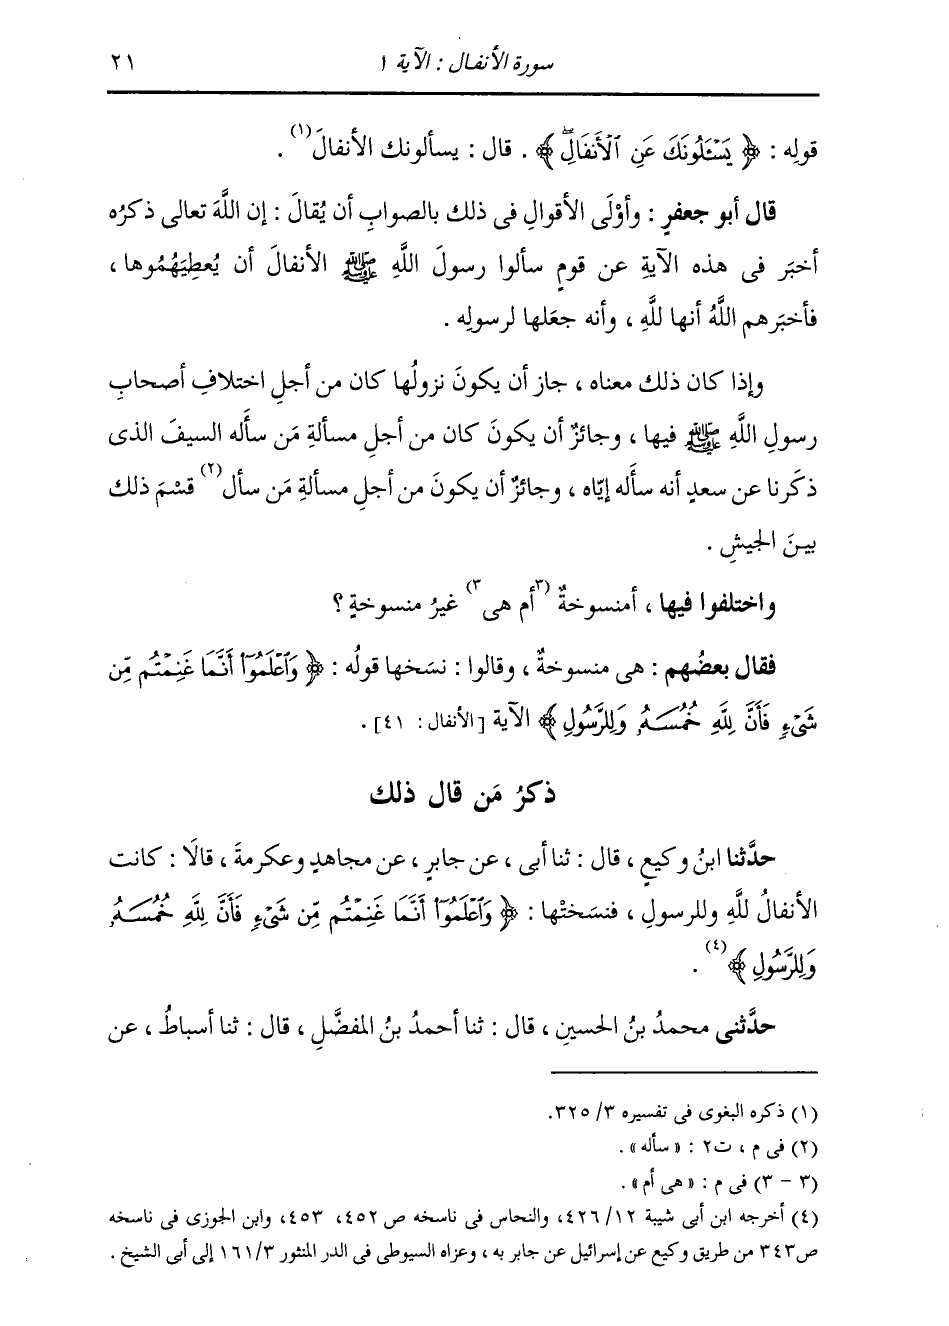 سورة الأنفال : الآية ١ ٢١
قولِه : ﴿ يَسْـَٔلُونَكَ عَنِ ٱلْأَنفَالِۖ ﴾ . قال : يسألونك الأنفالَ(١) .
قال أبو جعفرٍ : وأوْلَى الأقوالِ فى ذلك بالصوابِ أن يُقالَ : إن اللَّهَ تعالى ذكرُه
أخبَر فى هذه الآيةِ عن قومٍ سألوا رسولَ اللَّهِ ﷺ الأنفالَ أن يُعطِيَهُمُوها ،
فأخبَرهم اللَّهُ أنها للَّهِ ، وأنه جعَلها لرسولِه .
وإذا كان ذلك معناه ، جاز أن يكونَ نزولُها كان من أجلِ اختلافِ أصحابِ
رسولِ اللَّهِ ﷺ فيها ، وجائزٌ أن يكونَ كان من أجلِ مسألةِ مَن سأَله السيفَ الذى
ذكَرنا عن سعدٍ أنه سأَله إيّاه ، وجائزٌ أن يكونَ من أجلِ مسألةِ مَن سأل(٢) قسْمَ ذلك
بينَ الجيشِ .
واختلفوا فيها ، أمنسوخةٌ (٣أم هى٣) غيرُ منسوخةٍ ؟
فقال بعضُهم : هى منسوخةٌ ، وقالوا : نسَخها قولُه : ﴿ وَٱعْلَمُوٓا۟ أَنَّمَا غَنِمْتُم مِّن
شَىْءٍ فَأَنَّ لِلَّهِ خُمُسَهُۥ وَلِلرَّسُولِ ﴾ الآية [الأنفال: ٤١] .
ذكرُ مَن قال ذلك
حدَّثنا ابنُ وكيعٍ ، قال : ثنا أبى ، عن جابرٍ ، عن مجاهدٍ وعكرمةَ ، قالَا : كانت
الأنفالُ للَّهِ وللرسولِ ، فنسَختْها : ﴿ وَٱعْلَمُوٓا۟ أَنَّمَا غَنِمْتُم مِّن شَىْءٍ فَأَنَّ لِلَّهِ خُمُسَهُۥ
وَلِلرَّسُولِ ﴾(٤) .
حدَّثنى محمدُ بنُ الحسينِ ، قال : ثنا أحمدُ بنُ المفضَّلِ ، قال : ثنا أسباطُ ، عن
(١) ذكره البغوى فى تفسيره ٣/ ٣٢٥.
(٢) فى م ، ت٢ : « سأله » .
(٣ - ٣) فى م : « هى أم » .
(٤) أخرجه ابن أبى شيبة ١٢/ ٤٢٦، والنحاس فى ناسخه ص ٤٥٢، ٤٥٣، وابن الجوزى فى ناسخه
ص٣٤٣ من طريق وكيع عن إسرائيل عن جابر به ، وعزاه السيوطى فى الدر المنثور ٣/ ١٦١ إلى أبى الشيخ .